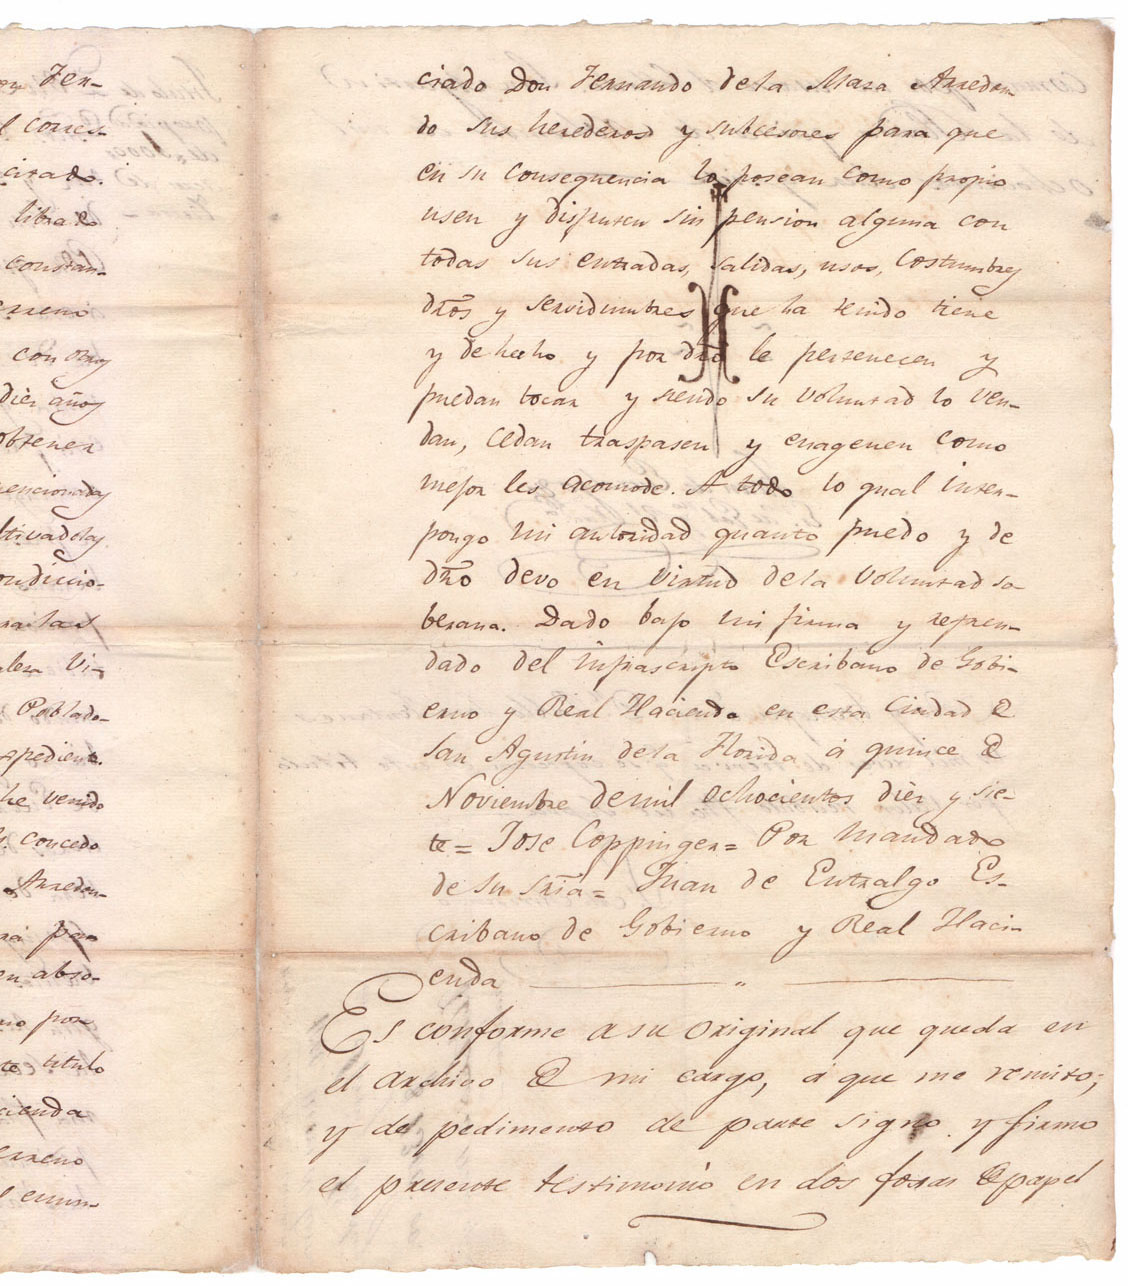 on Fer-
l corres-
citado.
libra e
constan-
rreno
con otros
diez años
obtener
mencionadas
ltivadolas
ondicio-
ra las
Vi-
Poblado-
spediente.
he venido
concedo
Arredon-
rá para
en abso-
mo por
te titulo
cienda
erreno
l enun-
ciado Don Fernando de la Maza Arredon-
do sus herederos y subcesores para que
en su consequencia lo posean como propio
usen y disfruten sin pension alguna con
todas sus entradas, salidas, usos, costumbres
dro͂s y servidumbres que ha tenido tiene
y de hecho y por dro͂ le pertenecen y
puedan tocar y siendo su voluntad lo ven-
dan, cedan traspasen y enagenen como
mejor les acomode. A todo lo qual inter-
pongo mi autoridad quanto puedo y de
dro͂ devo en virtud de la voluntad so-
berana. Dado bajo mi firma y refren-
dado del infrascripto Escribano de Gobi-
erno y Real Hacienda en esta Ciudad de
San Agustin de la Florida á quince de
Noviembre de mil ochocientos diez y sie-
te = Jose Coppinger = Por mandado
de su sria = Juan de Entralgo Es-
cribano de Gobierno y Real Haci-
enda
Es conforme a su original que queda en
el archivo de mi cargo, á que me remito;
y de pedimento de parte signo y firmo
el presente testimonio en dos fojas de papel